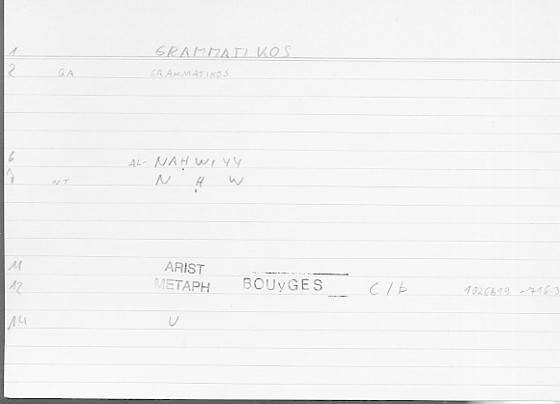 1 GRAMMATIKOS
2 GA GRAMMATIKOS
6 AL- NAḤWIYY
NT N Ḥ W
11 ARIST
12 METAPH BOUyGES C/b 1026b19 -716.3
14 U